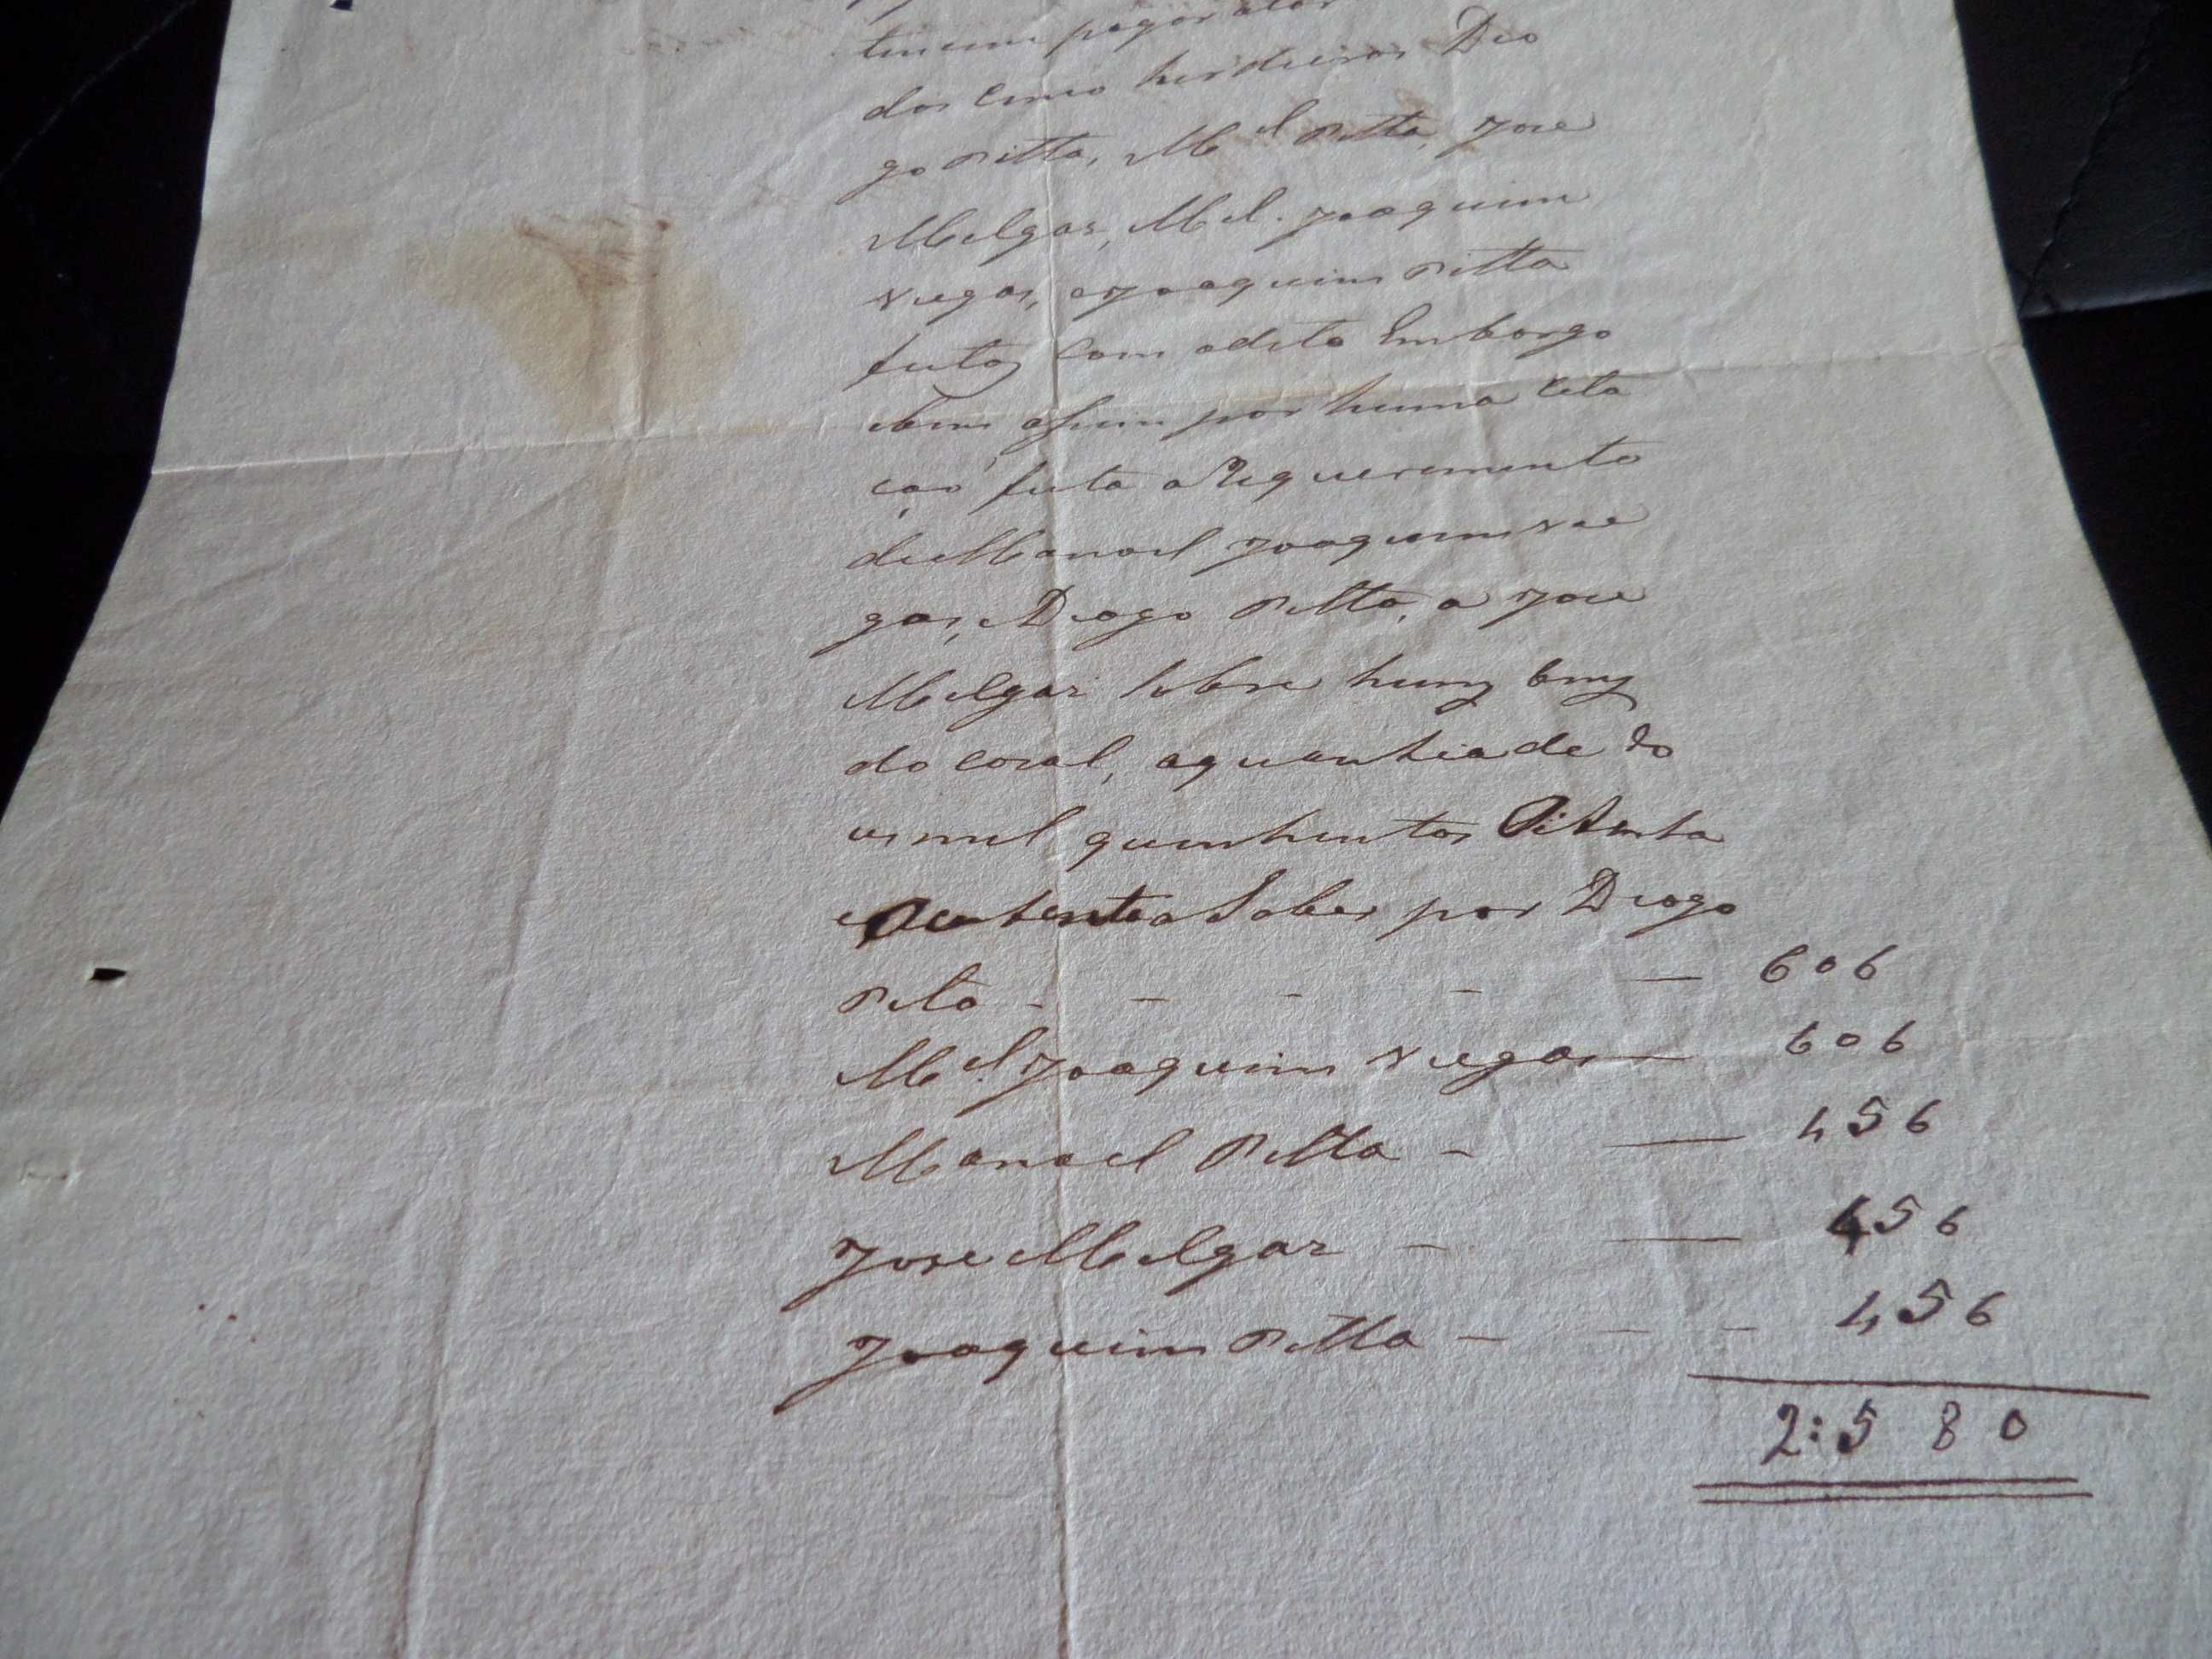 pagar
dos cinco herdeiros Dio
go Pitta, Mel Pitta, Jose
Melgas, Mel. Joaquim
Viegas, e Joaquim Pitta
feitas com adita Embargo
ebem assim por huma Cita
çaõ feita a Requeremento
de Manoel Joaquim Vie
gas, e Diogo Pitta, a Jose
Melgas sobre huns bens
do casal, aquantia de do
us mil quinhentos Oitenta
a Saber por Diogo
Pita - - - - — 606
Mel. Joaquim Viegas — 606
Manoel Pitta - — 456
Jose Melgaz - — 456
Joaquim Pitta - - - 456
2:580